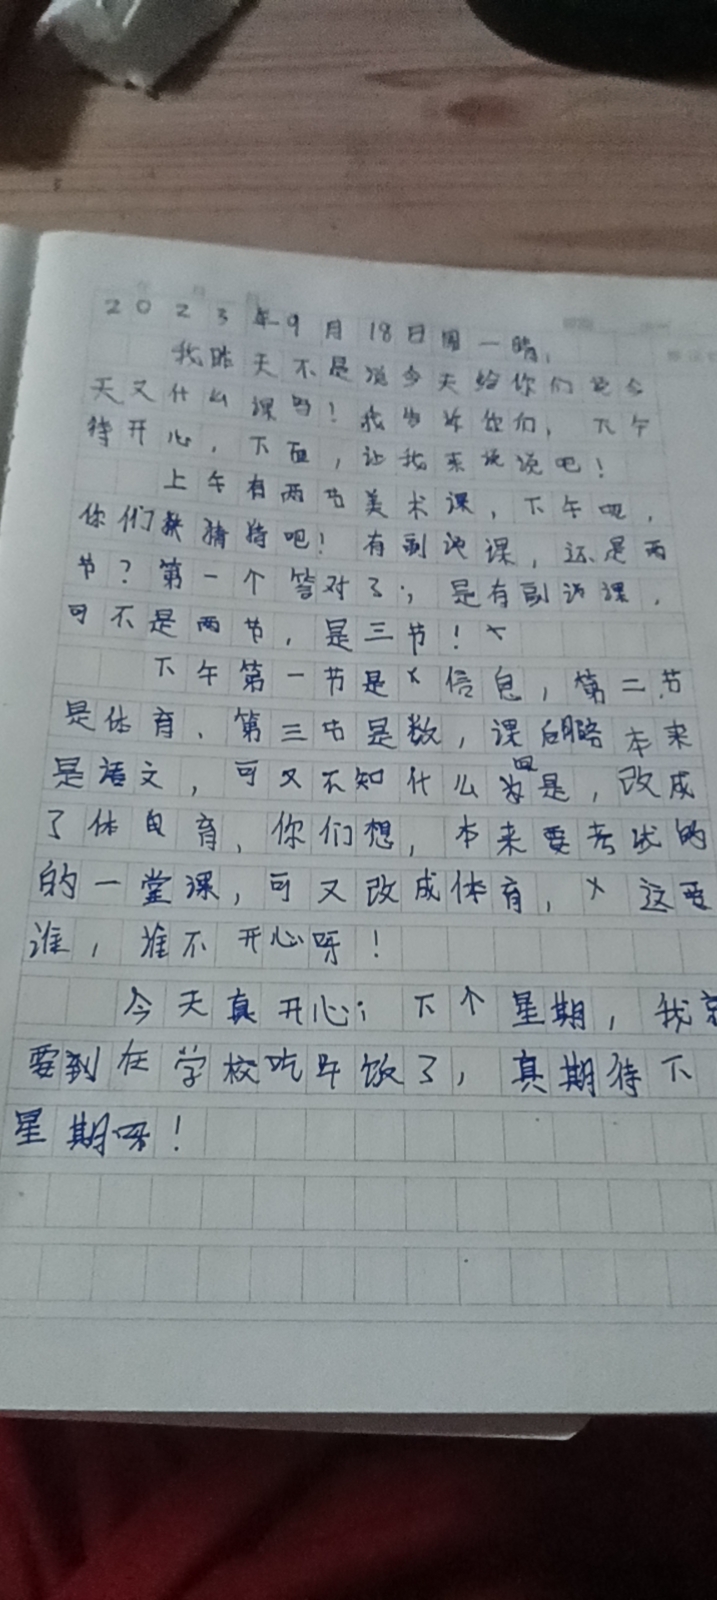 2023年9月18日周一晴,
我昨天不是说今天给你们说今
天又什么课吗!我告诉你们,下午
特开心,下面,让我来说说吧!
上午有两节美术课,下午呢,
你们猜猜吧!有副课,还是两
节?第一个答对了;是有副课,
可不是两节,是三节!
下午第一节是信息,第二节
是体育、第三节是数,课后服本来
是语文,可又不知什么是,改成
了体育,你们想,本来要考试的
的一堂课,可又改成体育,这要
谁,谁不开心呀!
今天真开心;下个星期,我
要到在学校吃午饭了,真期待下
星期呀!